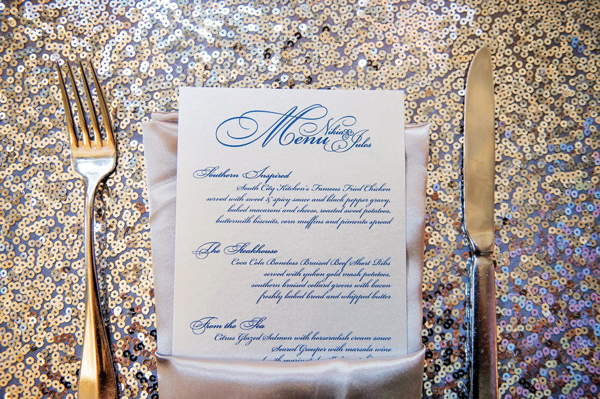 Menu Nikia & Jules
Southern Inspired
South City Kitchen's Famous Fried Chicken
served with sweet & spicy sauce and black pepper gravy,
baked macaroni and cheese, roasted sweet potatoes,
buttermilk biscuits, corn muffins and pimento spread
The Steakhouse
Coca Cola Boneless Braised Beef Short Ribs
served with yukon gold mash potatoes,
southern braised collard greens with bacon
freshly baked bread and whipped butter
From the Sea
Citrus Glazed Salmon with horseradish cream sauce
Seared Grouper with marsala wine